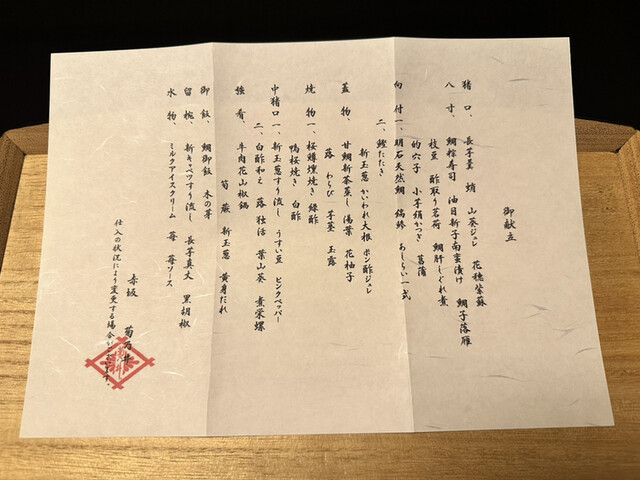 御献立
猪口、長芋羹 蛸 山葵ジュレ 花穂紫蘇
八寸、鯛粽寿司 油目新子南蛮漬け 鯛子落雁
枝豆 酢取り茗荷 鯛肝しぐれ煮
的穴子 小芋絹かつぎ 菖蒲
向付一、明石天然鯛 縞鯵 あしらい一式
二、鰹たたき
新玉葱 かいわれ大根 ポン酢ジュレ
蓋物、甘鯛新茶蒸し 湯葉 花柚子
蕗 わらび 芋茎 玉露
焼物一、桜鱒燻焼き 緑酢
鴨桜焼き 白酢
中猪口一、新玉葱すり流し うすい豆 ピンクペッパー
二、白酢和え 蕗 独活 葉山葵 煮栄螺
強肴、牛肉花山椒鍋
筍 蕨 新玉葱 黄身だれ
御飯、鯛御飯 木の芽
留椀、新キャベツすり流し 長芋真丈 黒胡椒
水物、ミルクアイスクリーム 苺 苺ソース
赤坂 菊乃井
仕入の状況により変更する場合がございます。